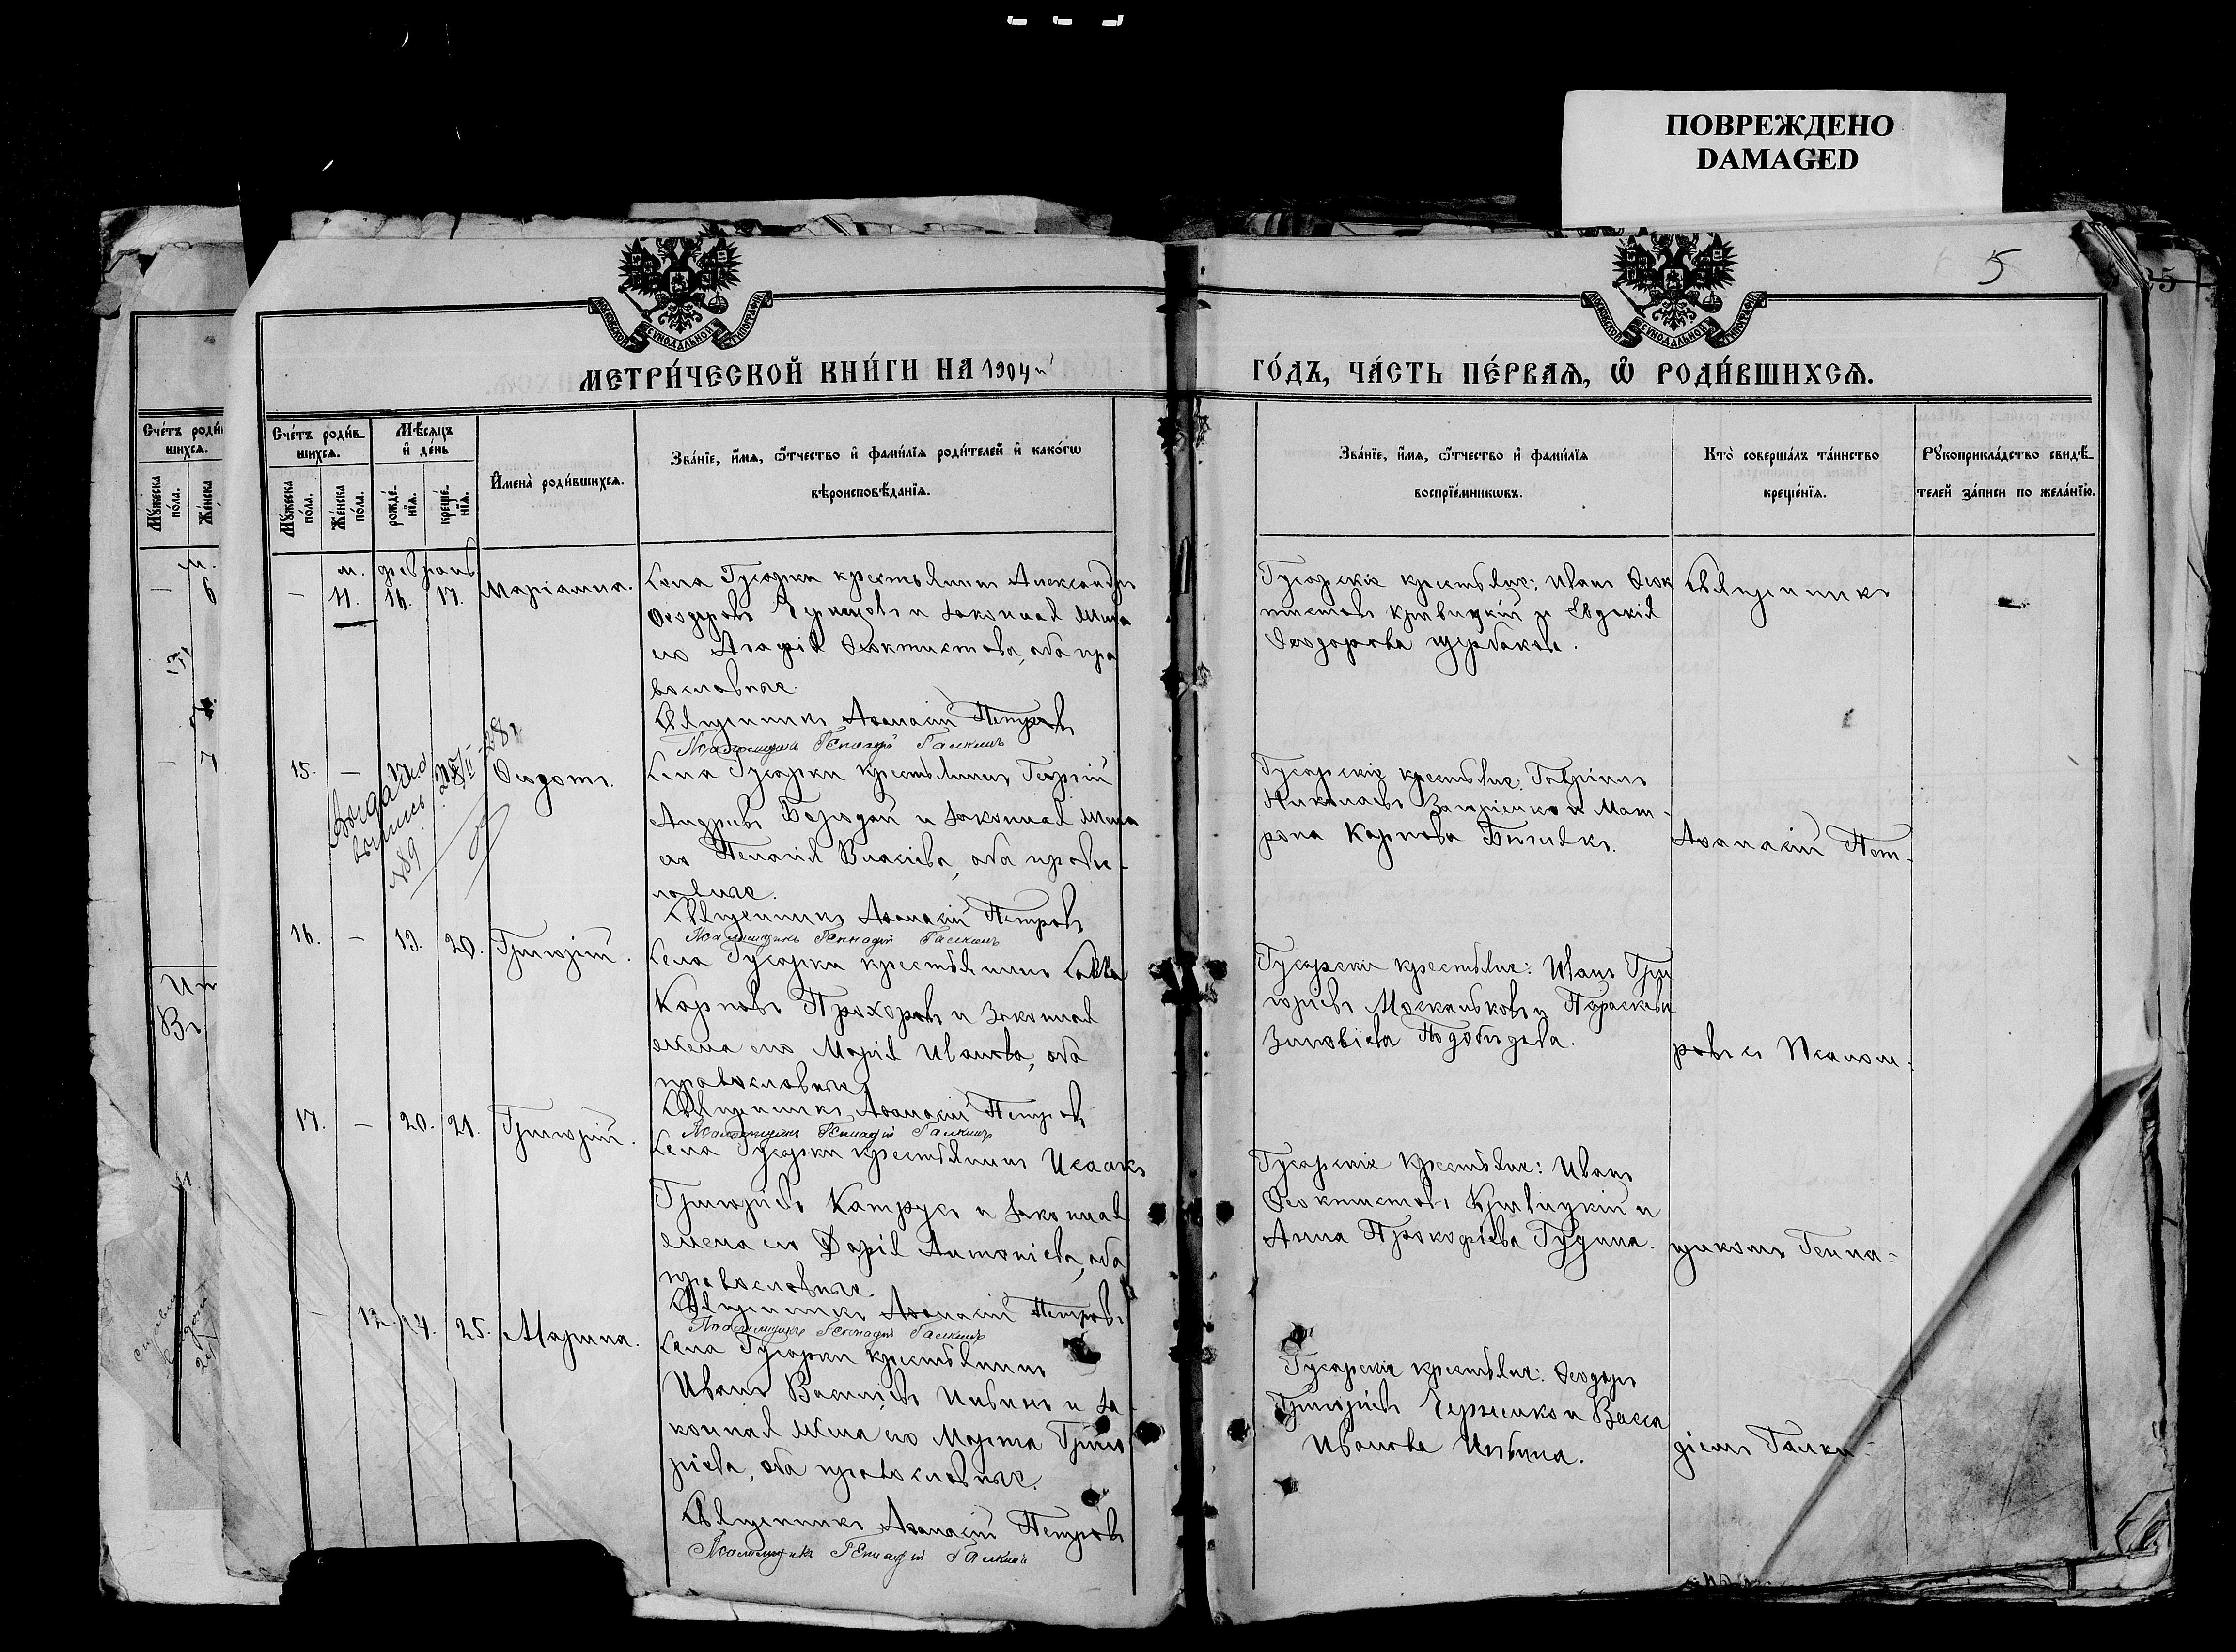 ПОВРЕЖДЕНО
DAMAGED
5
МОСКОВСКОЙ СѴНОДАЛЬНОЙ ТИПОГРАФІИ
МОСКОВСКОЙ СѴНОДАЛЬНОЙ ТИПОГРАФІИ
МЕТРИ́ЧЕСКОЙ КНИ́ГИ НА 1904й
ГО́ДЪ, ЧА́СТЬ ПЕ́РВАѦ, Ѽ РОДИ́ВШИХСѦ.
Счéтъ роди́в-
шихсѧ.
Мꙋ́жеска
по́ла.
Же́нска
по́ла.
Мѣ́сѧцъ
и҆ де́нь
рожде́-
нїѧ.
креще́-
нїѧ.
И҆мена̀ роди́вшихсѧ.
Зва́нїе, и҆́мѧ, ѻ҆́тчество и҆ фами́лїѧ роди́телей и҆ како́гѡ
вѣроисповѣ́данїѧ.
Зва́нїе, и҆́мѧ, ѻ҆́тчество и҆ фами́лїѧ
воспрїе́мникѡвъ.
Кто̀ соверша́лъ та́инство
креще́нїѧ.
Рꙋкоприкла́дство свидѣ́-
телей за́писи по жела́нїю.
м. февраль
— 11. 16. 17. Маріамна.
Села Гусарки крестьянинъ Александръ
Ѳеодоровъ и законная жена
его Агафія Ѳеоктистова, оба пра
вославные.
Священникъ Аѳанасій Петровъ
Псаломщикъ Геннадій Галкинъ
Гусарскіе крестьяне: Иванъ Ѳеок
тистовъ Кривицкій и Евдокія
Ѳеодорова Щербакова.
Священникъ
15. — Ѳедотъ.
Выдача
выпись
№89
Села Гусарки крестьянинъ Георгій
Андреевъ Бородай и законная жена
его Пелагія Власіева, оба правос-
лавные.
Священникъ Аѳанасій Петровъ
Псаломщикъ Геннадій Галкинъ
Гусарскіе крестьяне: Гавріилъ
Николаевъ и Мат-
рона Карпова
Аѳанасій Пет-
16. — 19. 20. Григорій.
Села Гусарки крестьянинъ Савва
Карповъ Прохоровъ и законная
жена его Марія Иванова, оба
православные
Священникъ Аѳанасій Петровъ
Псаломщикъ Геннадій Галкинъ
Гусарскіе крестьяне: Иванъ Гри
горіевъ Москальковъ и Параскева
Зиновіева Подобѣдова.
ровъ съ Псалом-
17. — 20. 21. Григорій.
Села Гусарки крестьянинъ Исаакъ
Григоріевъ Катрусъ и законная
жена его Дарія Антоніева, оба
православные.
Священникъ Аѳанасій Петровъ
Псаломщикъ Геннадій Галкинъ
Гусарскіе крестьяне: Иванъ
Ѳеоктистовъ Кривицкій и
Анна Прокофіева Гудина.
щикомъ Генна-
— 12. 24. 25. Марина.
Села Гусарки крестьянинъ
Иванъ Василіевъ Ивинъ и за
конная жена его Марта Григо
ріева, оба православные.
Священникъ Аѳанасій Петровъ
Псаломщикъ Геннадій Галкинъ
Гусарскіе крестьяне: Ѳеодоръ
Григоріевъ Черненко и Васса
Иванова Ивбина.
діемъ Галки-